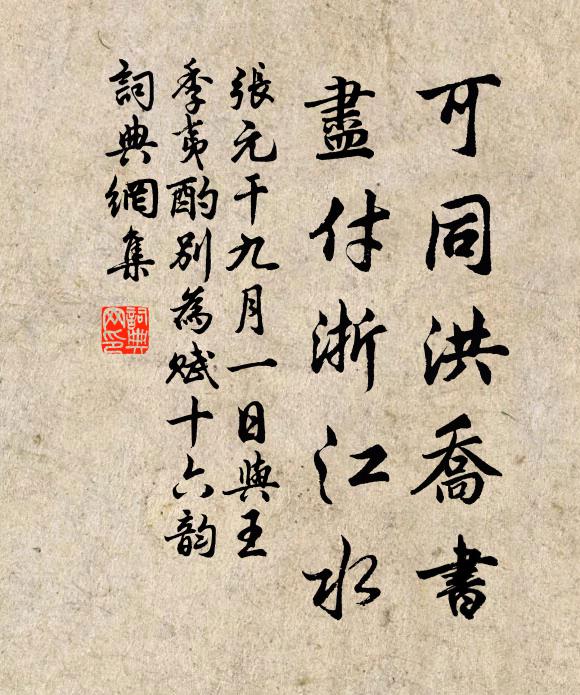 可同洪喬書
盡付浙江水
張元干九月一日與王
季夷酌別為賦十六韵
詞典網集
詞典
網印